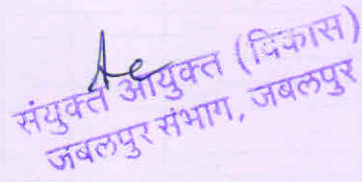 संयुक्त आयुक्त (विकास)
जबलपुर संभाग, जबलपुर